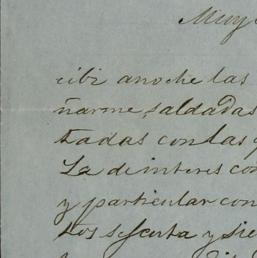 Muy
cibi anoche las
ñarme, saldadas
tadas con las
La de interes con
y particular con
tos sesenta y sie